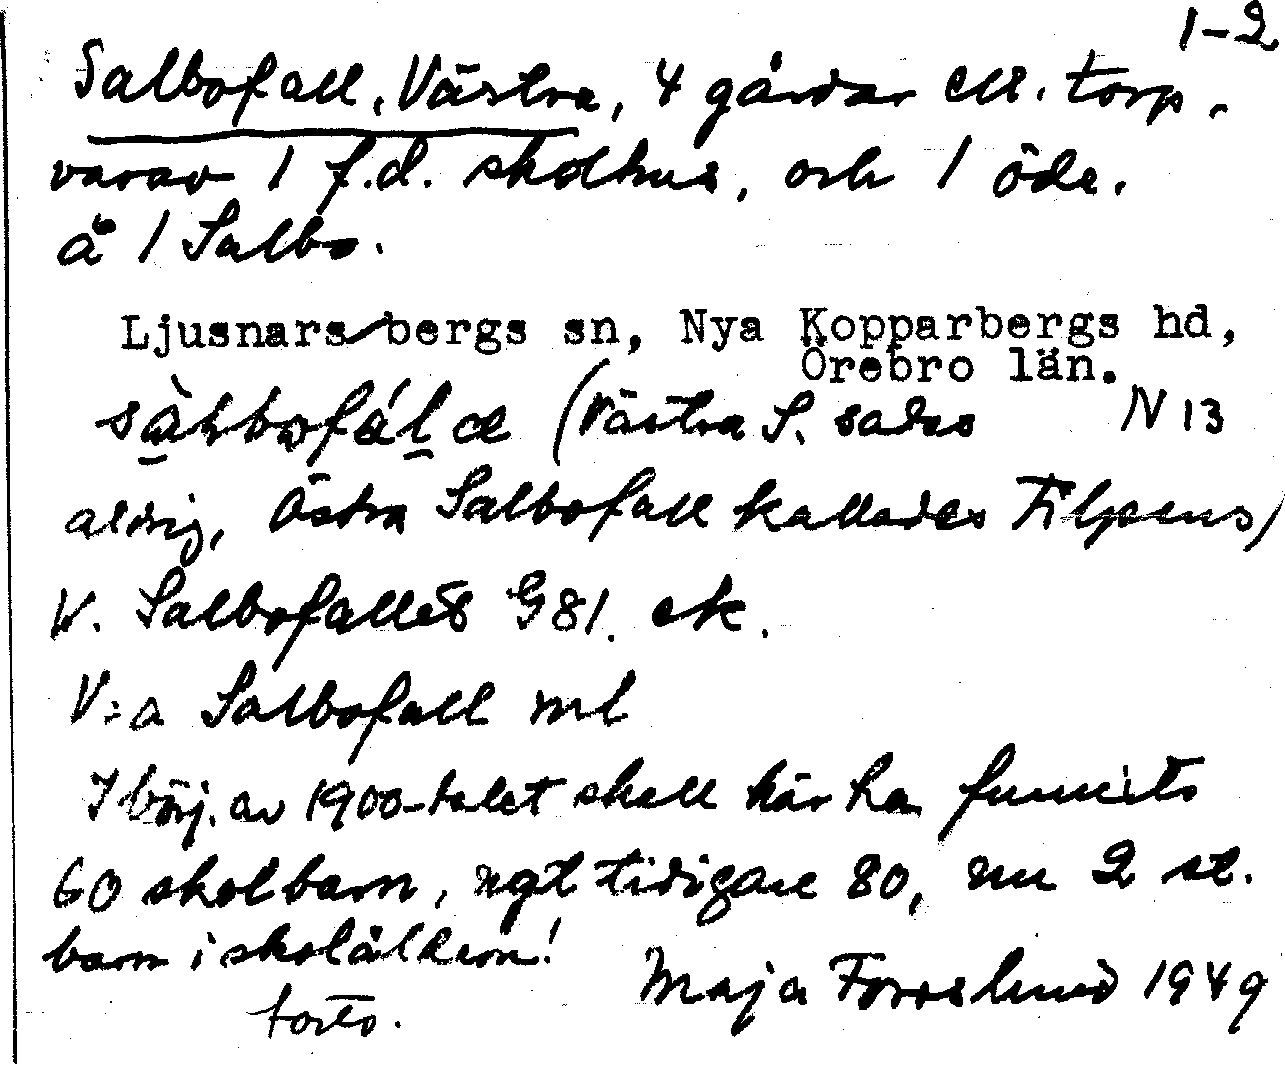 1-2
Salbofall, Västra, 4 gårdar ell. torp,
varav 1 f.d. skolhus, och 1 öde.
å 1 Salbo.
Ljusnarsbergs sn, Nya Kopparbergs hd,
Örebro län.
(Västra S. sades N 13
aldrig, Östra Salbofall kallades Filpens)
V. Salbofallet G 81. ek.
V:a Salbofall ml
I börj. av 1900-talet skall här ha funnits
60 skolbarn, ngt tidigare 80, nu 2 st.
barn i skolåldern!
forts.
Maja Forsslund 1949